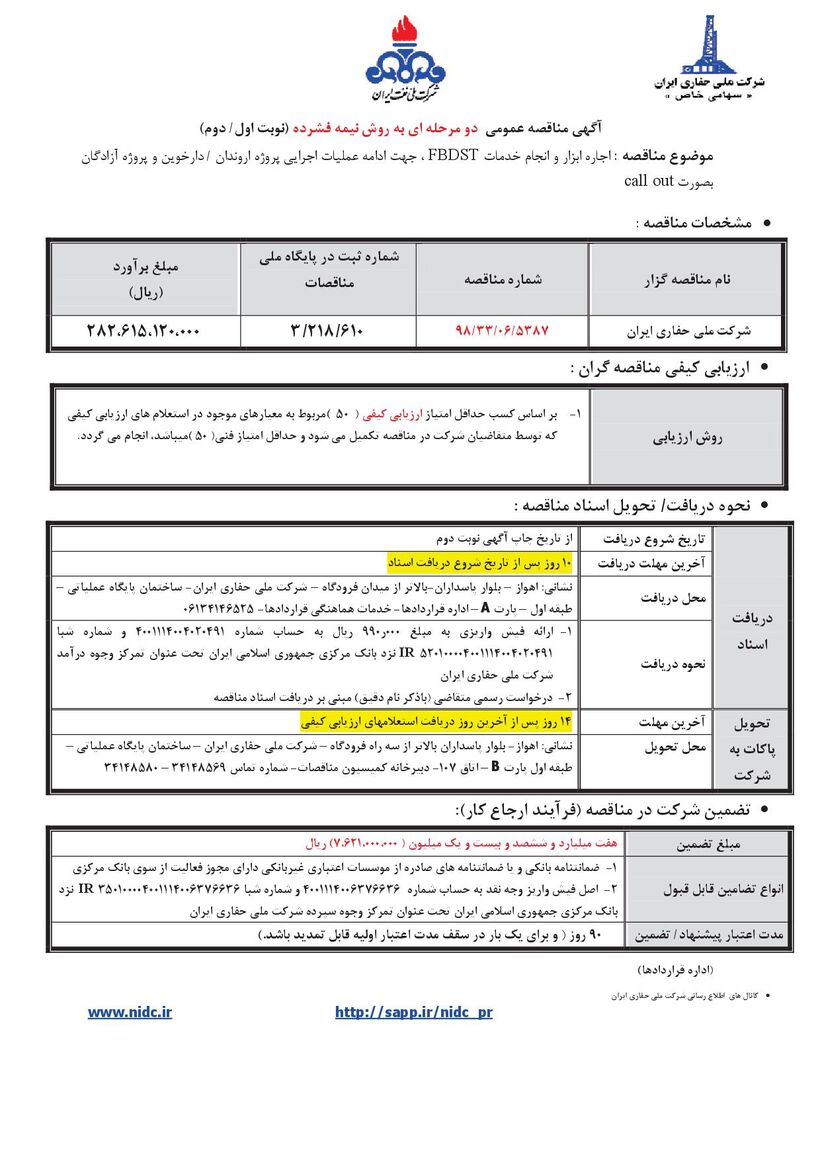 شرکت ملی نفت ایران
شرکت ملی حفاری ایران
« سهامی خاص »
آگهی مناقصه عمومی دو مرحله ای به روش نیمه فشرده (نوبت اول/ دوم)
موضوع مناقصه : اجاره ابزار و انجام خدمات FBDST ، جهت ادامه عملیات اجرایی پروژه اروندان /دارخوین و پروژه آزادگان
بصورت call out
• مشخصات مناقصه :
نام مناقصه گزار
شماره مناقصه
شماره ثبت در پایگاه ملی
مناقصات
مبلغ برآورد
(ریال)
شرکت ملی حفاری ایران
۹۸/۳۳/۰۶/۵۳۸۷
۳/۲۱۸/۶۱۰
۲۸۲،۶۱۵،۱۲۰،۰۰۰
• ارزیابی کیفی مناقصه گران :
روش ارزیابی
۱- بر اساس کسب حداقل امتیاز ارزیابی کیفی ( ۵۰ )مربوط به معیارهای موجود در استعلام های ارزیابی کیفی
که توسط متقاضیان شرکت در مناقصه تکمیل می شود و حداقل امتیاز فنی( ۵۰ )میباشد، انجام می گردد.
• نحوه دریافت/ تحویل اسناد مناقصه :
دریافت
اسناد
تاریخ شروع دریافت
از تاریخ چاپ آگهی نوبت دوم
آخرین مهلت دریافت
۱۰ روز پس از تاریخ شروع دریافت اسناد
محل دریافت
نشانی: اهواز – بلوار پاسداران-بالاتر از میدان فرودگاه – شرکت ملی حفاری ایران- ساختمان پایگاه عملیاتی –
طبقه اول – پارت A – اداره قراردادها- خدمات هماهنگی قراردادها- ۰۶۱۳۴۱۴۶۵۲۵
نحوه دریافت
۱- ارائه فیش واریزی به مبلغ ۹۹۰٫۰۰۰ ریال به حساب شماره ۴۰۰۱۱۱۴۰۰۴۰۲۰۴۹۱ و شماره شبا
IR ۵۲۰۱۰۰۰۰۴۰۰۱۱۱۴۰۰۴۰۲۰۴۹۱ نزد بانک مرکزی جمهوری اسلامی ایران تحت عنوان تمرکز وجوه درآمد
شرکت ملی حفاری ایران
۲- درخواست رسمی متقاضی (باذکر نام دقیق) مبنی بر دریافت اسناد مناقصه
تحویل
پاکات به
شرکت
آخرین مهلت
۱۴ روز پس از آخرین روز دریافت استعلامهای ارزیابی کیفی
محل تحویل
نشانی: اهواز- بلوار پاسداران بالاتر از سه راه فرودگاه – شرکت ملی حفاری ایران – ساختمان پایگاه عملیاتی –
طبقه اول پارت B – اتاق ۱۰۷- دبیرخانه کمیسیون مناقصات- شماره تماس ۳۴۱۴۸۵۶۹ – ۳۴۱۴۸۵۸۰
• تضمین شرکت در مناقصه (فرآیند ارجاع کار):
مبلغ تضمین
هفت میلیارد و ششصد و بیست و یک میلیون ( ۷،۶۲۱،۰۰۰،۰۰۰) ریال
انواع تضامین قابل قبول
۱- ضمانتنامه بانکی و یا ضمانتنامه های صادره از موسسات اعتباری غیربانکی دارای مجوز فعالیت از سوی بانک مرکزی
۲- اصل فیش واریز وجه نقد به حساب شماره ۴۰۰۱۱۱۴۰۰۶۳۷۶۶۳۶ و شماره شبا IR ۳۵۰۱۰۰۰۰۴۰۰۱۱۱۴۰۰۶۳۷۶۶۳۶ نزد
بانک مرکزی جمهوری اسلامی ایران تحت عنوان تمرکز وجوه سپرده شرکت ملی حفاری ایران
مدت اعتبار پیشنهاد/ تضمین
۹۰ روز ( و برای یک بار در سقف مدت اعتبار اولیه قابل تمدید باشد.)
(اداره قراردادها)
• کانال های اطلاع رسانی شرکت ملی حفاری ایران
http://sapp.ir/nidc_pr
www.nidc.ir